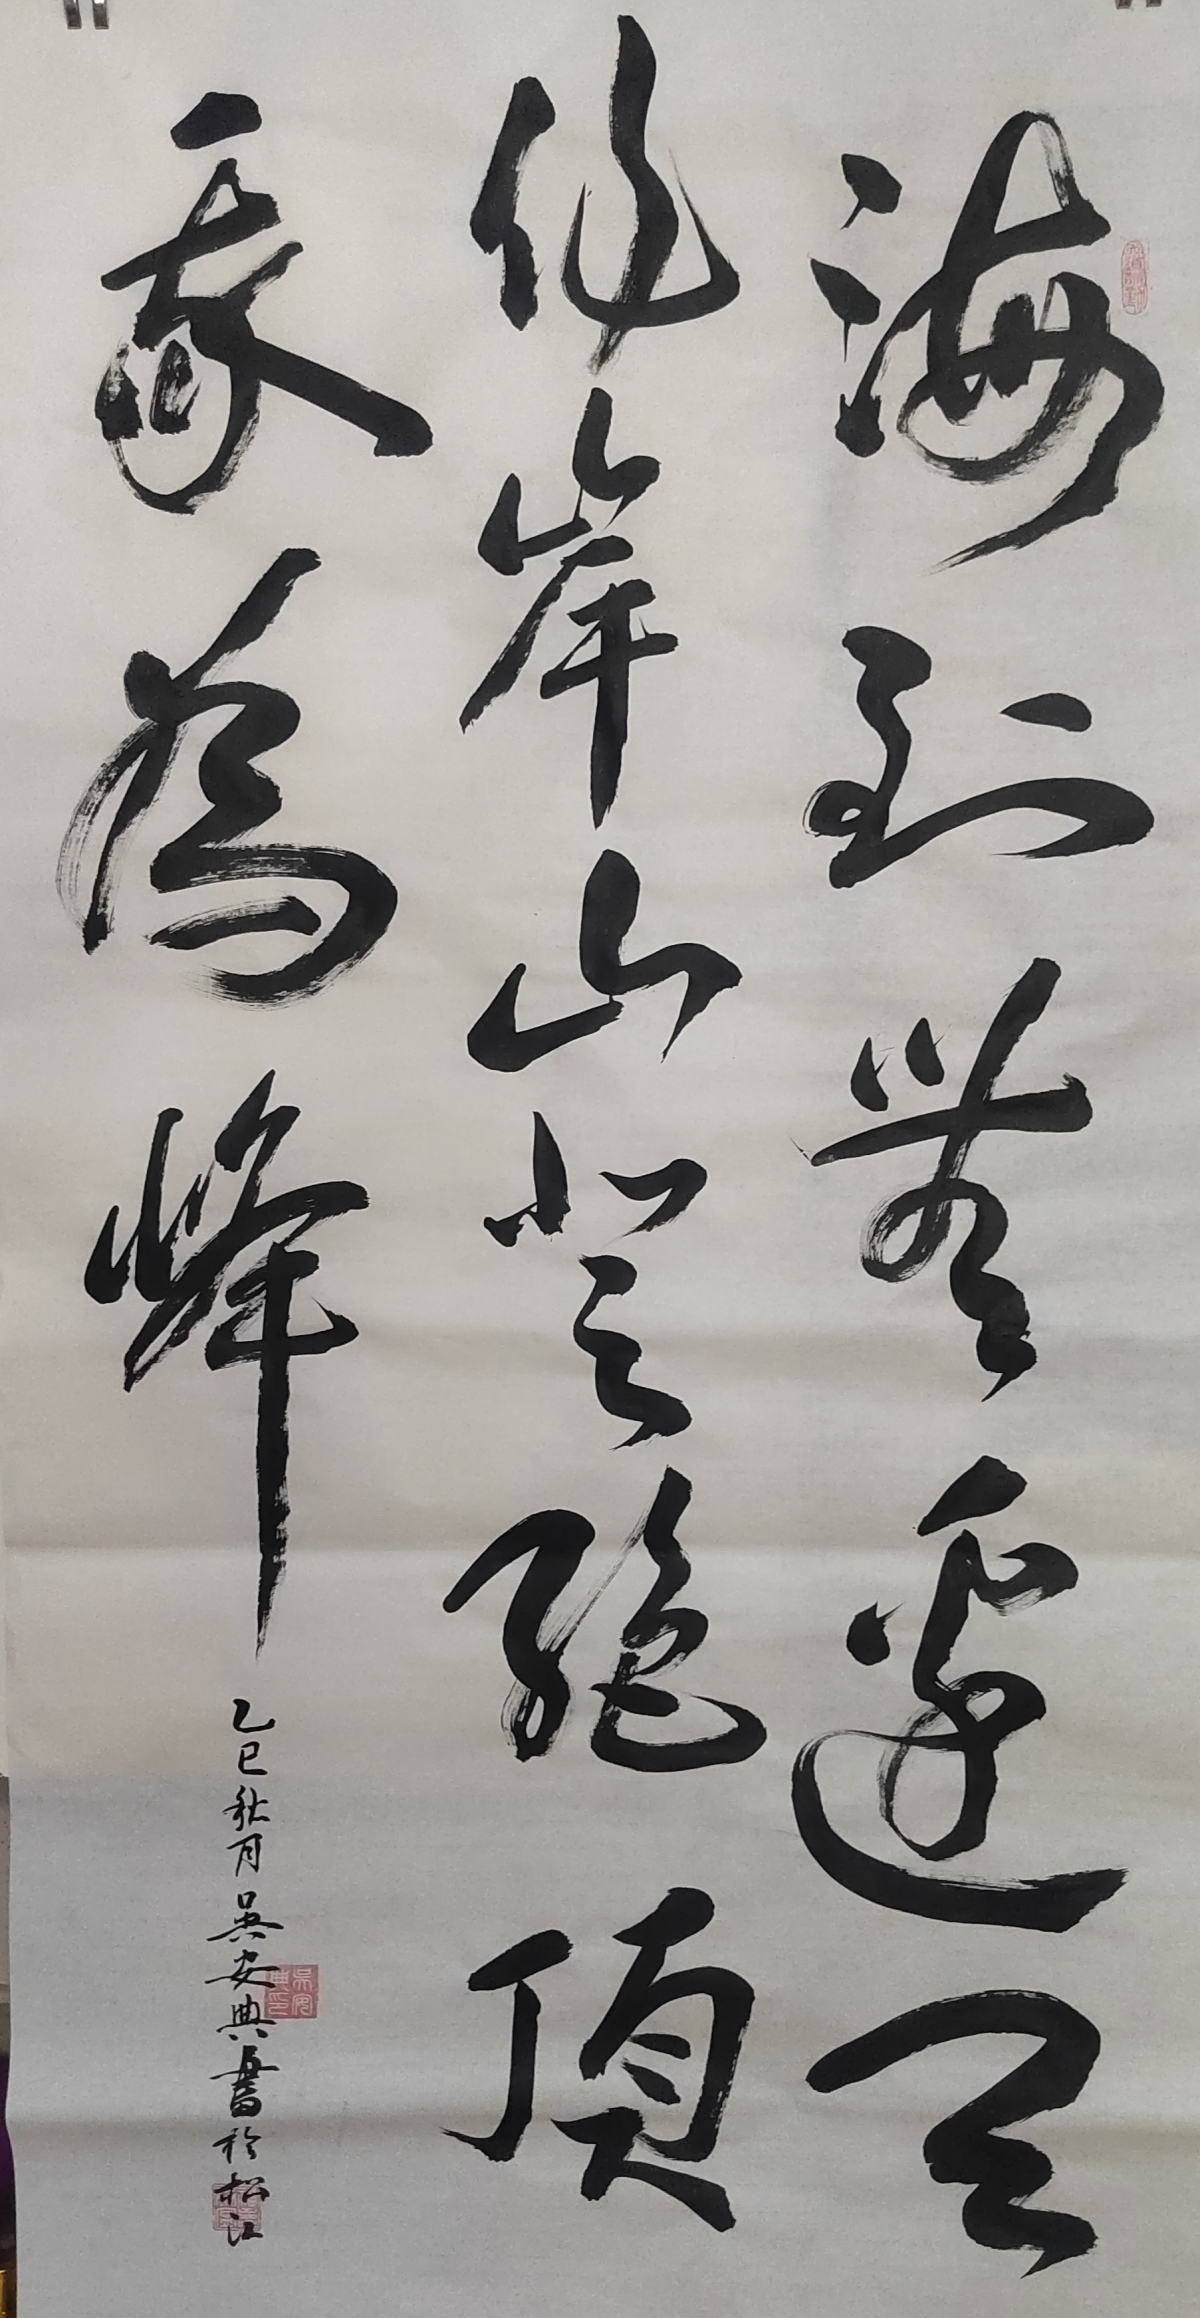 海到無邊天
作岸山登絕頂
我為峰
乙巳秋月吳安典書於松江
吳安典印